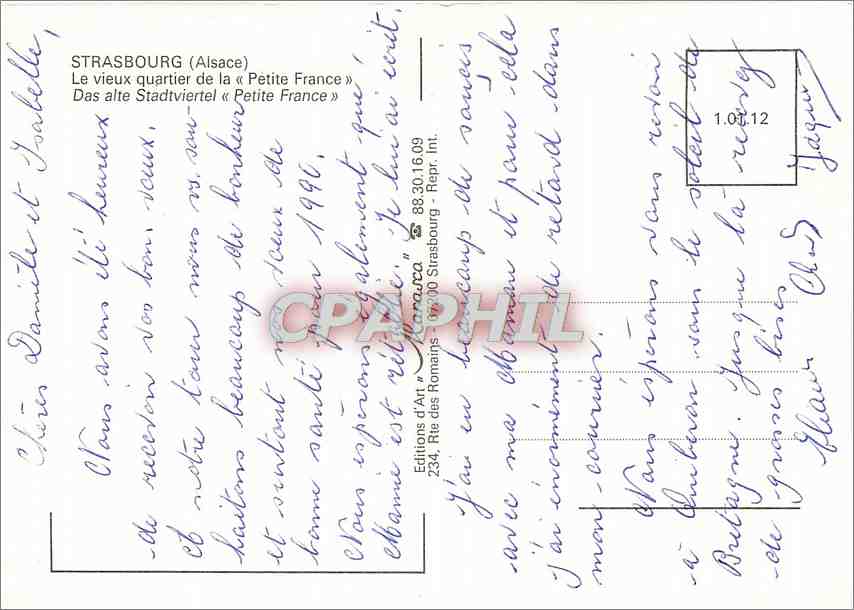 STRASBOURG (Alsace)
Le vieux quartier de la « Petite France »
Das alte Stadtviertel « Petite France »
Chères Danièle et Isabelle,
Nous avons été heureux
de recevoir vos bons vœux.
A notre tour nous vs. sou-
haitons beaucoup de bonheur
et surtout nos vœux de
bonne santé pour 1990.
Nous espérons également que
Mamie est rétablie. Je lui ai écrit.
Editions d'Art " Marasca " ☎ 88.30.16.09
234, Rte des Romains - 67200 Strasbourg - Repr. Int.
J'ai eu beaucoup de soucis
avec ma Maman et pour cela
j'ai énormément de retard dans
mon courrier.
Nous espérons vous revoir
à Quiberon sous le soleil de
Bretagne. Jusque là recevez
de grosses bises
1.01.12
CPAPHIL